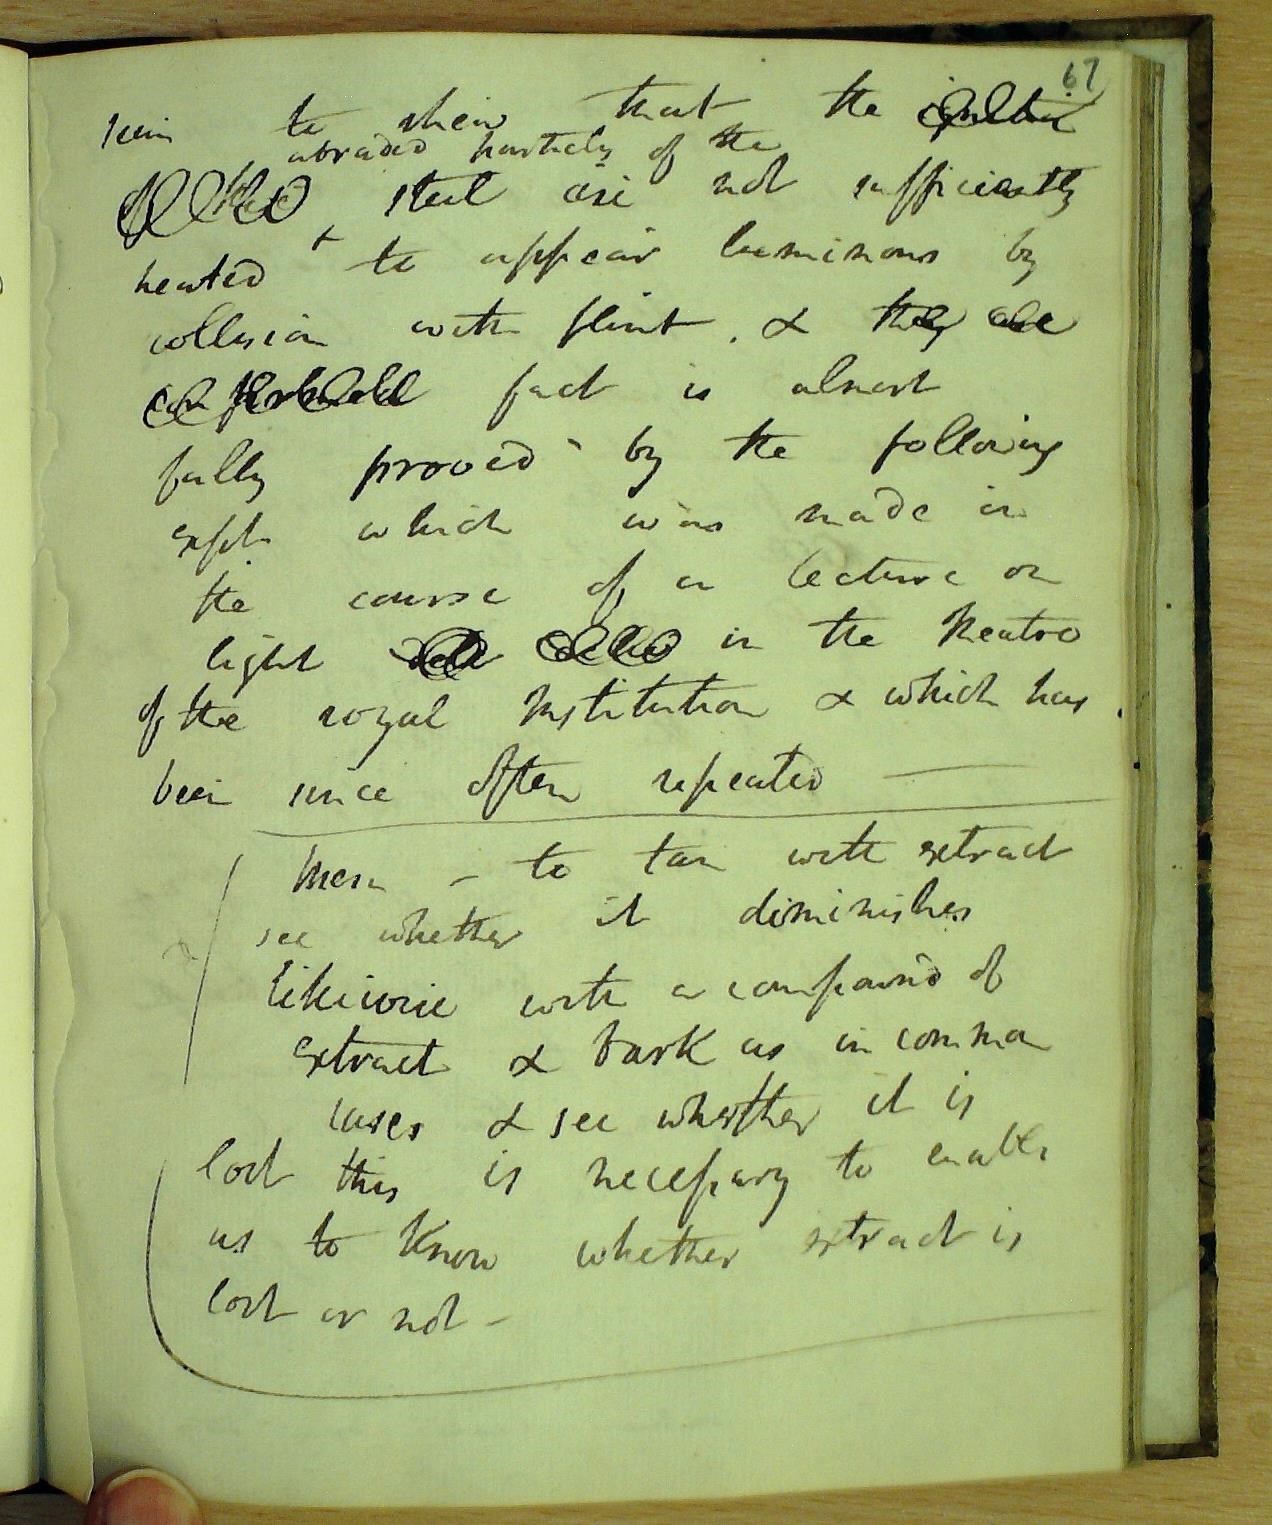 67
seem to shew that the
abraded particles of the
steel are not sufficiently
heated to appear luminous by
collision with flint. & they are
fact is almost
fully proved by the following
expt which was made in
the course of a lecture on
light in the theatre
of the royal Institution & which has
been since often repeated —
Mem - to tan with extract
see whether it diminishes
likewise with a compound of
extract & bark as in common
cases & see whether it is
lost this is necessary to enable
us to know whether extract is
lost or not -